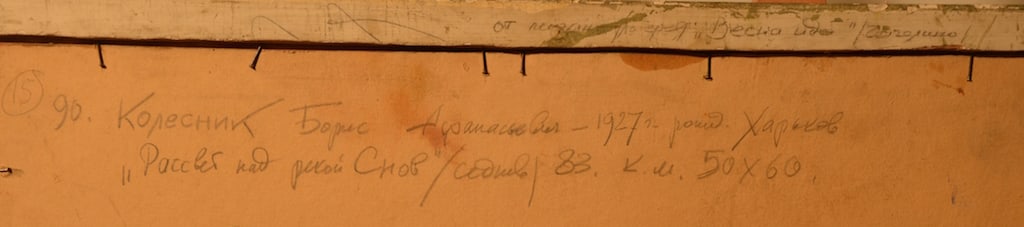 от "Весна идё"
15
90. Колесник Борис Афанасьевич – 1927 г. рожд. Харьков
"Рассвет над рекой Снов" /Седнев/ 83. к.м. 50х60.